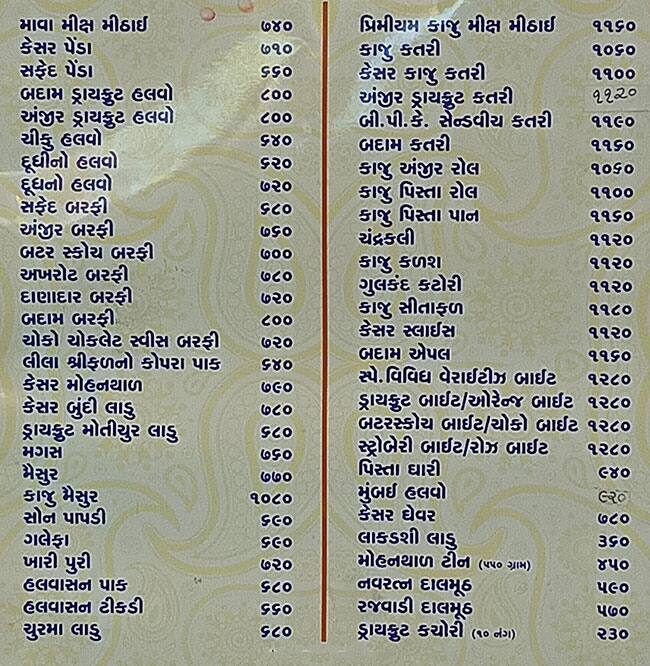 માવા મીક્ષ મીઠાઈ ૭૪૦
કેસર પેંડા ૭૧૦
સફેદ પેંડા ૬૬૦
બદામ ડ્રાયફ્રુટ હલવો ૮૦૦
અંજીર ડ્રાયફ્રુટ હલવો ૮૦૦
ચીકુ હલવો ૬૪૦
દૂધીનો હલવો ૬૨૦
દૂધનો હલવો ૭૨૦
સફેદ બરફી ૬૮૦
અંજીર બરફી ૭૬૦
બટર સ્કોચ બરફી ૭૦૦
અખરોટ બરફી ૭૮૦
દાણાદાર બરફી ૭૨૦
બદામ બરફી ૮૦૦
ચોકો ચોકલેટ સ્વીસ બરફી ૭૨૦
લીલા શ્રીફળનો કોપરા પાક ૬૪૦
કેસર મોહનથાળ ૭૯૦
કેસર બુંદી લાડુ ૭૮૦
ડ્રાયફ્રુટ મોતીચુર લાડુ ૬૮૦
મગસ ૭૬૦
મૈસુર ૭૭૦
કાજુ મૈસુર ૧૦૮૦
સોન પાપડી ૬૯૦
ગલેફા ૬૯૦
ખારી પુરી ૭૨૦
હલવાસન પાક ૬૮૦
હલવાસન ટીકડી ૬૬૦
ચુરમા લાડુ ૬૮૦
પ્રિમીયમ કાજુ મીક્ષ મીઠાઈ ૧૧૬૦
કાજુ કતરી ૧૦૬૦
કેસર કાજુ કતરી ૧૧૦૦
અંજીર ડ્રાયફ્રુટ કતરી ૧૧૨૦
બી.પી.કે. સેન્ડવીચ કતરી ૧૧૯૦
બદામ કતરી ૧૧૬૦
કાજુ અંજીર રોલ ૧૦૬૦
કાજુ પિસ્તા રોલ ૧૧૦૦
કાજુ પિસ્તા પાન ૧૧૬૦
ચંદ્રકલી ૧૧૨૦
કાજુ કળશ ૧૧૨૦
ગુલકંદ કટોરી ૧૧૨૦
કાજુ સીતાફળ ૧૧૮૦
કેસર સ્લાઈસ ૧૧૨૦
બદામ એપલ ૧૧૬૦
સ્પે.વિવિધ વેરાઈટીઝ બાઈટ ૧૨૮૦
ડ્રાયફ્રુટ બાઈટ/ઓરેન્જ બાઈટ ૧૨૮૦
બટરસ્કોચ બાઈટ/ચોકો બાઈટ ૧૨૮૦
સ્ટ્રોબેરી બાઈટ/રોઝ બાઈટ ૧૨૮૦
પિસ્તા ઘારી ૯૪૦
મુંબઈ હલવો ૯૨૦
કેસર ઘેવર ૭૮૦
લાકડશી લાડુ ૩૬૦
મોહનથાળ ટીન (૫૫૦ ગ્રામ) ૪૫૦
નવરત્ન દાલમૂઠ ૫૯૦
રજવાડી દાલમૂઠ ૫૭૦
ડ્રાયફ્રુટ કચોરી (૧૦ નંગ) ૨૩૦